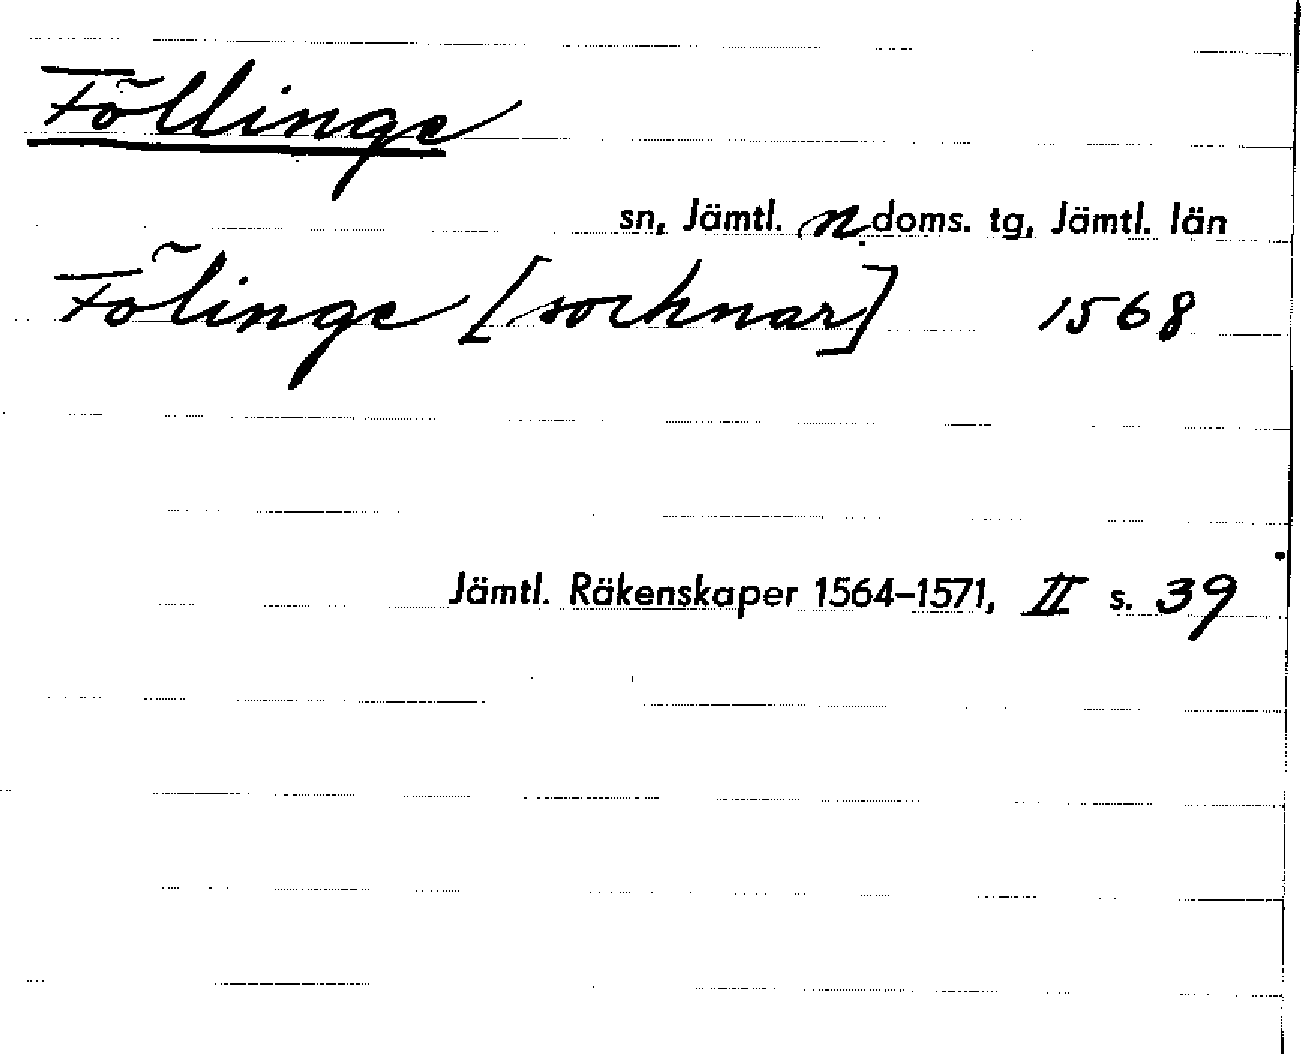 Föllinge
sn, Jämtl. n. doms. tg, Jämtl. län
Fölinge [socknar] 1568
Jämtl. Räkenskaper 1564–1571, II s. 39